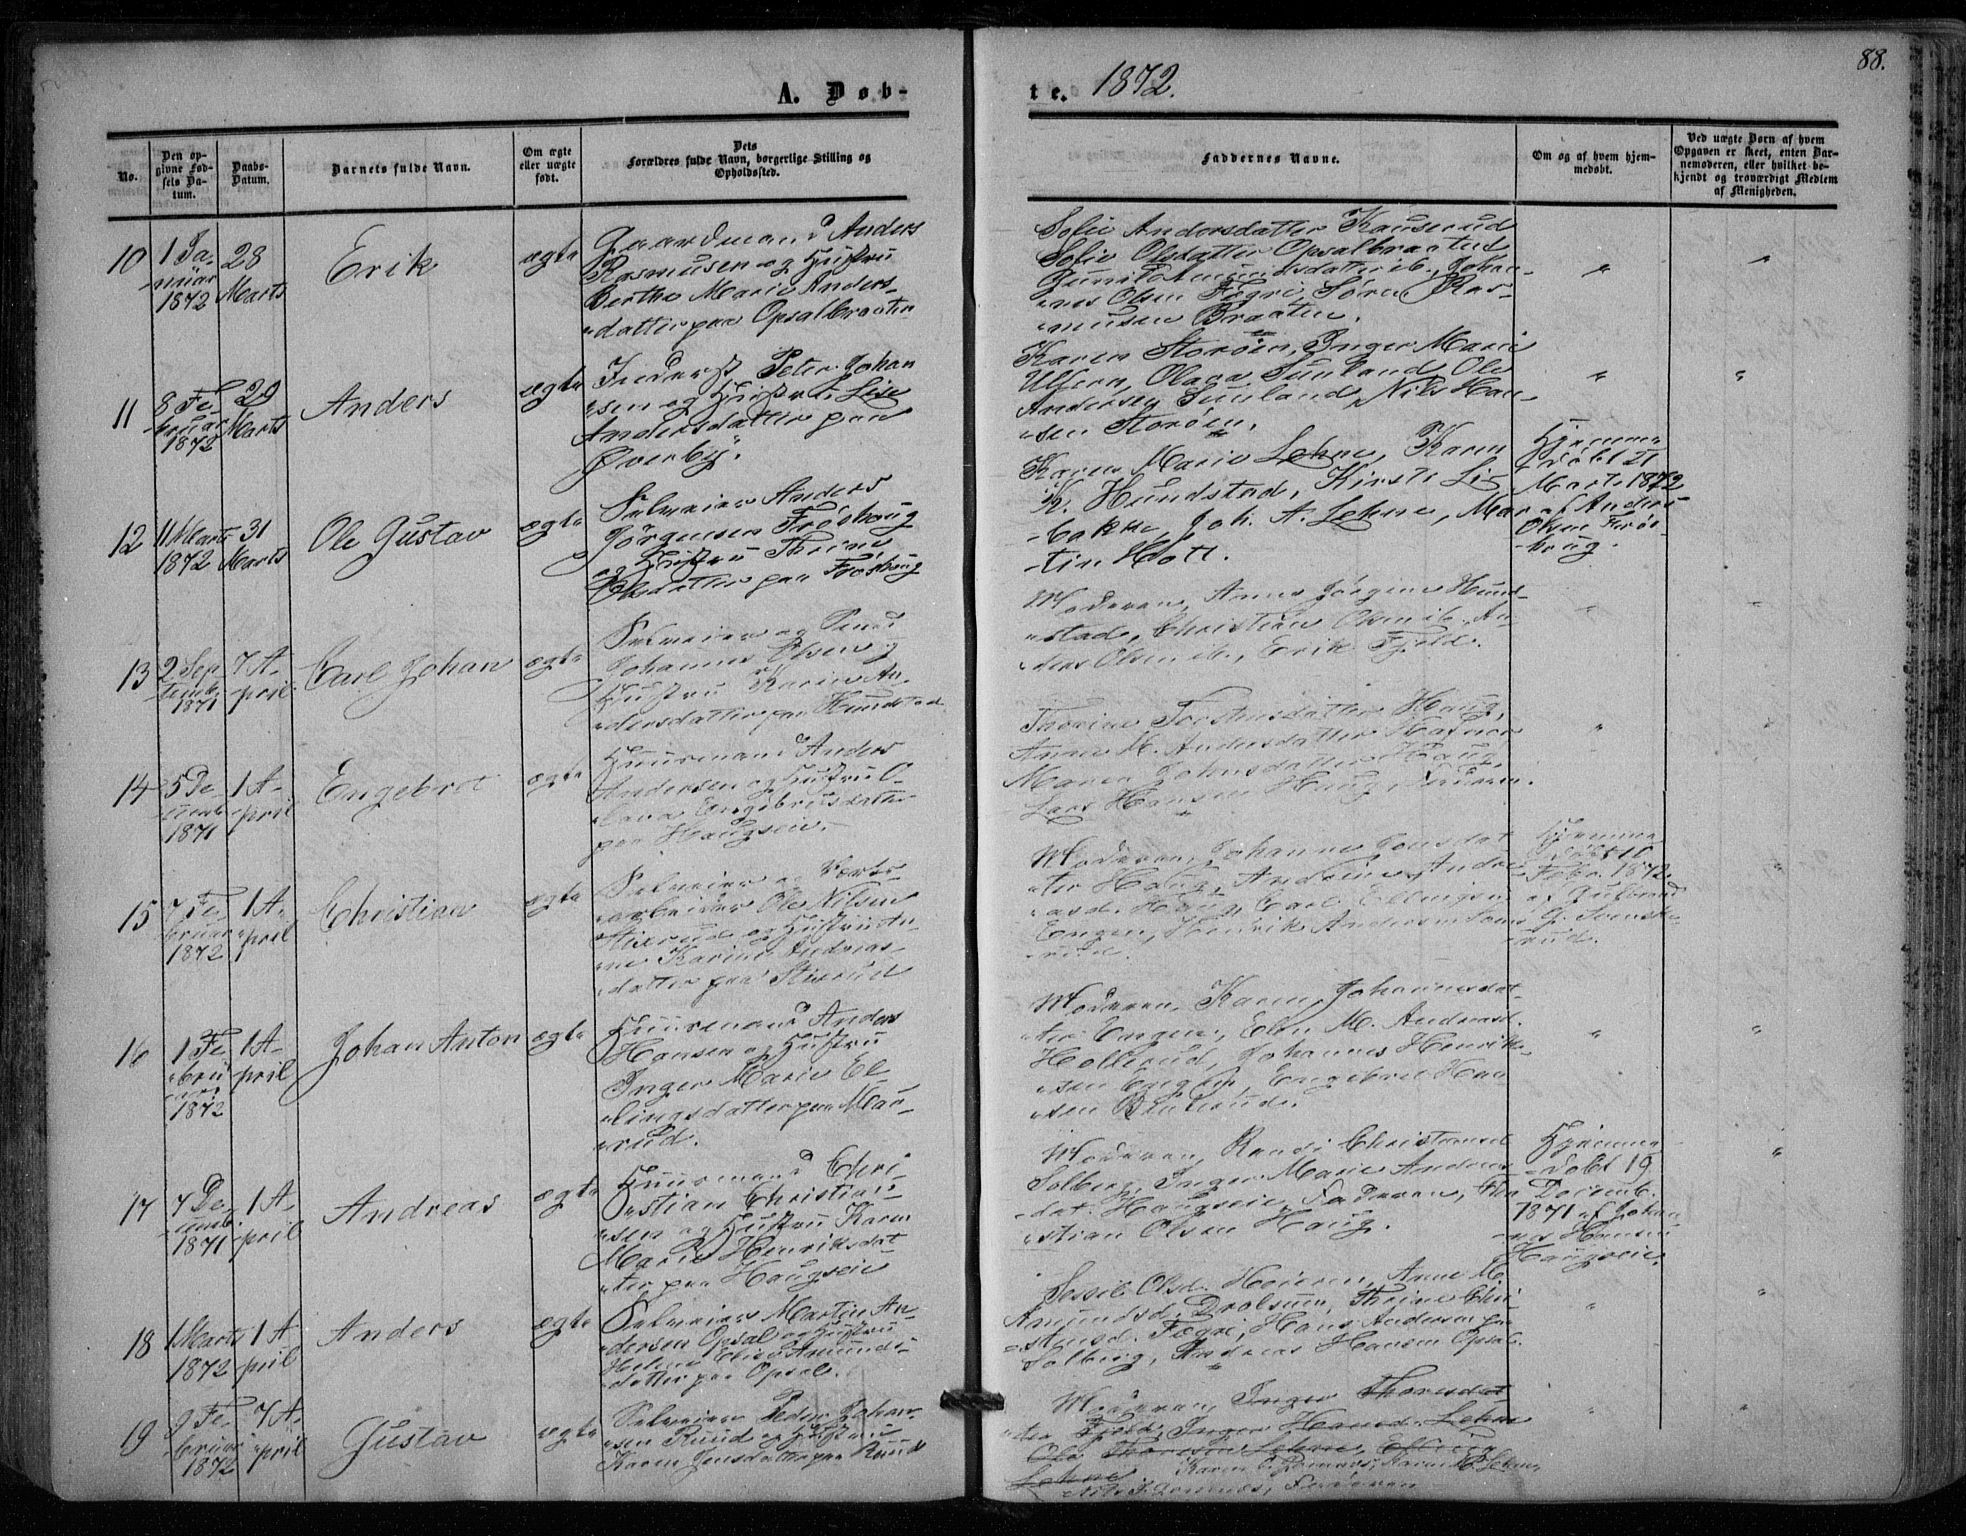 88.
A. Døb-
te. 1872.
No.
Den op-
givne Fød-
sels Da-
tum.
Daabs-
Datum.
Barnets fulde Navn.
Om ægte
eller uægte
født.
Dets
Forældres fulde Navn, borgerlige Stilling og
Opholdssted.
Faddernes Navne.
Om og af hvem hjem-
medøbt.
Ved uægte Børn af hvem
Opgaven er skeet, enten Bar-
nemoderen, eller hvilket be-
kjendt og troværdigt Medlem
af Menigheden.
10
1 Ja-
nuar
1872
28
Marts
Erik
ægte
Gaardmand Anders
Rasmusen og Hustru
Berthe Marie Anders-
datter paa Opsalbraaten
Sofie Andersdatter Kauserud
Sofie Olsdatter Opsalbraaten
Gunild Amundsdatter ib., Johan-
nes Olsen Fegri, Søren Ras-
musen Braaten.
"
"
11
8 Fe-
bruar
1872
29
Marts
Anders
ægte
Inderst Peter Johan
sen og Hustru Lise
Andersdatter paa
Øverby.
Karen Storøen, Inger Marie
Ulfern, Olaga Sunland, Ole
Andersen Sunland, Nils Han
sen Storøen.
"
"
12
11 Marts
1872
31
Marts
Ole Gustav
ægte
Selveier Anders
Jørgensen Frøshaug
og Hustru Thrine
Olsdatter paa Frøshaug
Karen Marie Lehne, Karen
K. Hundstad, Kirsti Li-
bakke, Joh. A. Lehne, Mar
tin Moe.
Hjemme
døbt 21
Marts 1872
af Anders
Olsen Frøs-
haug.
13
2 Sep
temb.
1871
7 A-
pril
Carl Johan
ægte
Selveier og Smed
Johannes Olsen og
Hustru Karen An-
dersdatter paa Hundstad
Moderen, Anne Jørgine Hund-
stad, Christian Olsen ib. An-
ders Olsen ib., Erik Fjeld.
"
"
14
5 De
cemb.
1871
1 A-
pril
Engebret
ægte
Huusmand Anders
Andersen og Hustru O-
lava Engebretsdatter
paa Haugseie.
Thorine Torstensdatter Haug,
Anne M. Andersdatter Hafnor
Maren Johnsdatter Haug,
Lars Hansen Haug, Faderen.
"
"
15
7 Fe-
bruar
1872
1 A-
pril
Christian
ægte
Selveier og Værks-
arbeider Ole Nilsen
Stixrud og Hustru An-
ne Karine Andreas-
datter paa Stixrud
Moderen, Johanne Ionsdat
ter Haug, Andrine Andre
asd. Haug, Carl Ellingsen
Engen, Henrik Andersen Sons
rud.
Hjemme
døbt 11
Febr. 1872.
af Gulbrand
G. Svenske
rud.
"
16
1 Fe-
bru
ar
1872
1 A-
pril
Johan Anton
ægte
Huusmand Anders
Hansen og Hustru
Inger Marie El-
lingsdatter paa Mau-
rud.
Moderen, Karen Johannesdat-
ter Engen, Elen M. Andreasd.
Hollerud, Johannes Henrik-
sen Engen, Engebret Han
sen
"
"
17
7 De
cemb.
1871
1 A-
pril
Andreas
ægte
Huusmand Chri-
stian Christian-
sen og Hustru Karen
Marie Henriksdat
ter paa Haugseie
Moderen, Randi Christiansd.
Solberg, Inger Marie Anders
dat. Haugseie, Faderen, Chri
stian Olsen Haug.
Hjemme
døbt 19
Decemb.
1871 af Johan-
nes Hansen
Haugseie.
"
18
1 Marts
1872
1 A
pril
Anders
ægte
Selveier Martin An-
dersen Opsal og Hustru
Helene Elise Amunds-
datter paa Opsal.
Sessil Olsd. Moieren, Anne M.
Amundsd. Drolsum, Thrine Chri-
stiansd. Fægri, Hans Andersen
Solberg, Andreas Hansen Opsal.
"
"
19
9 Fe-
bruar
1872
7 A-
pril
Gustav
ægte
Selveier Peder Johan-
sen Ruud og Hustru
Karen Jensdatter paa Ruud
Moderen, Inger Thoresdat
ter Fjeld, Inger Hansd. Lehne
Ole Thoresen Lehne, Elling
Lehne
Faderen
"
"